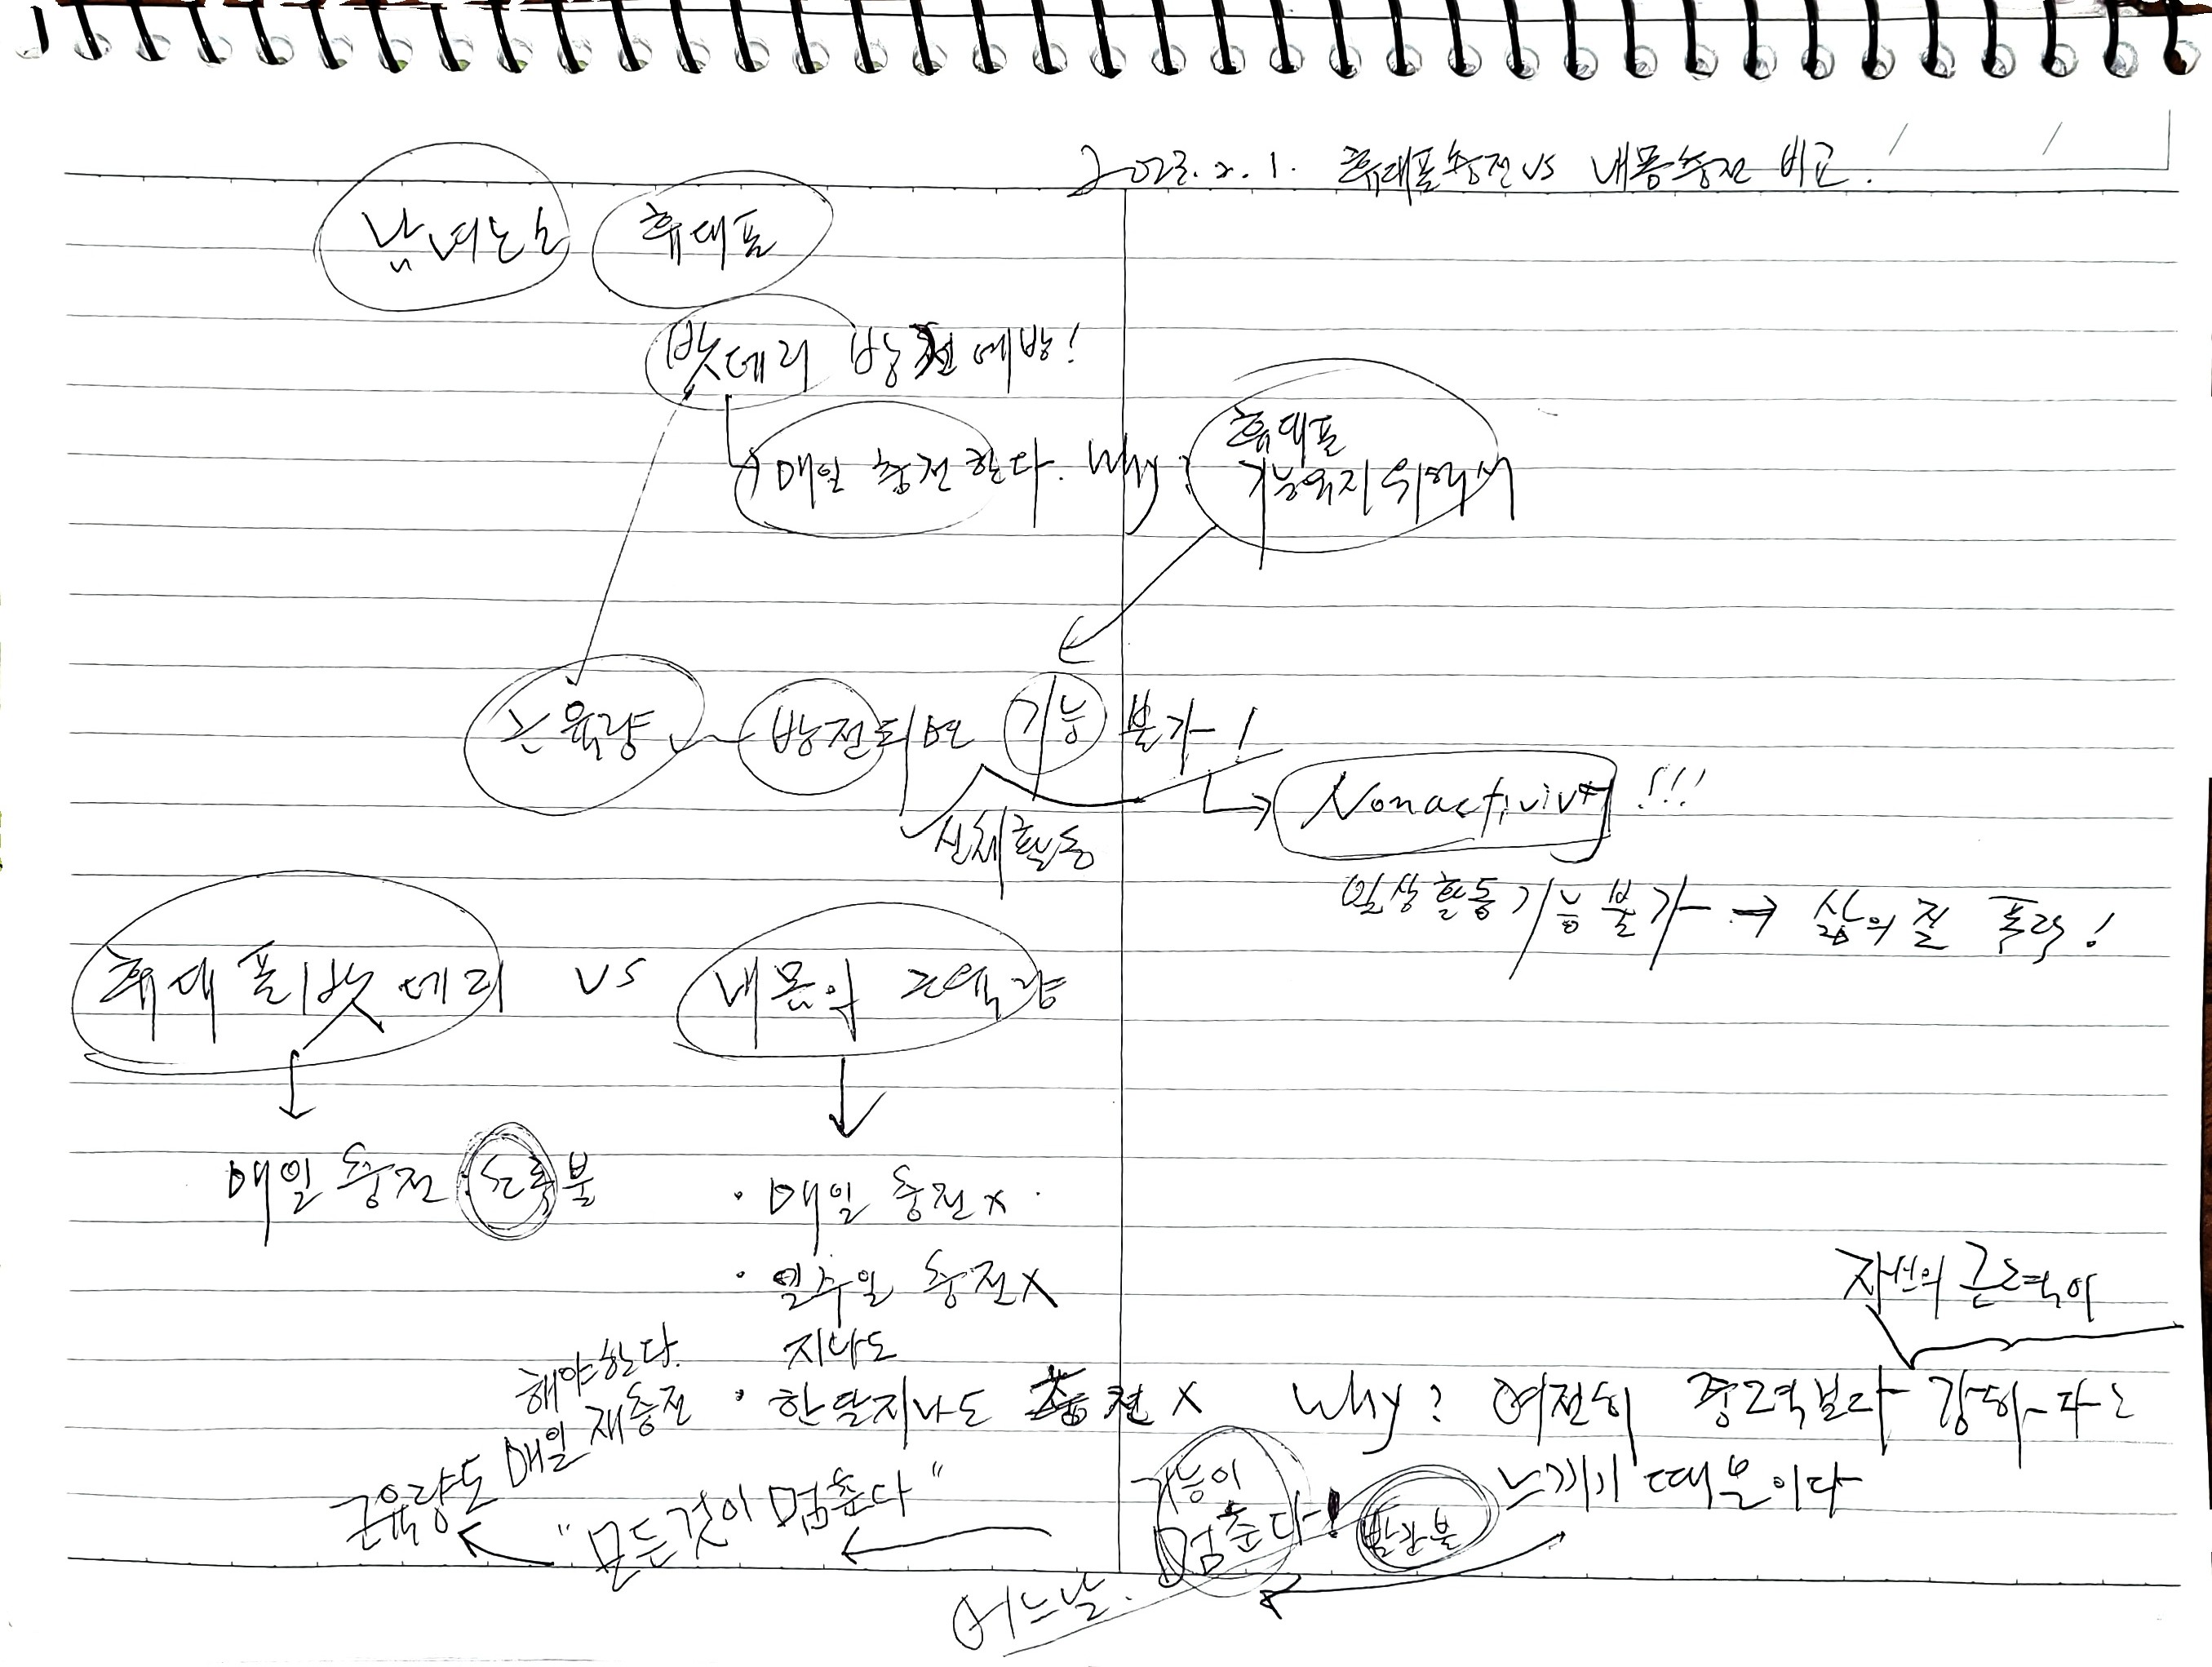 2023.2.1. 휴대폰충전 VS 내몸충전 비교!
남녀노소 휴대폰
밧데리 방전 예방!
매일 충전한다. Why?
휴대폰
기능유지위해서
근육량 방전되면 기능 불가!
신체활동
Nonactivivty!!!
일상활동 기능 불가 → 삶의 질 폭락!
휴대폰 밧데리 VS 내몸의 근육량
매일 충전: 초록불
· 매일 충전 x
· 일주일 충전 X
지나도
· 한달지나도 충전 X Why? 여전히 중력보다 강하다는
자신의 근력이
느끼기 때문이다
빨간불
어느날.
기능이
멈춘다!
"모든것이 멈춘다"
근육량도 매일 재충전
해야한다.